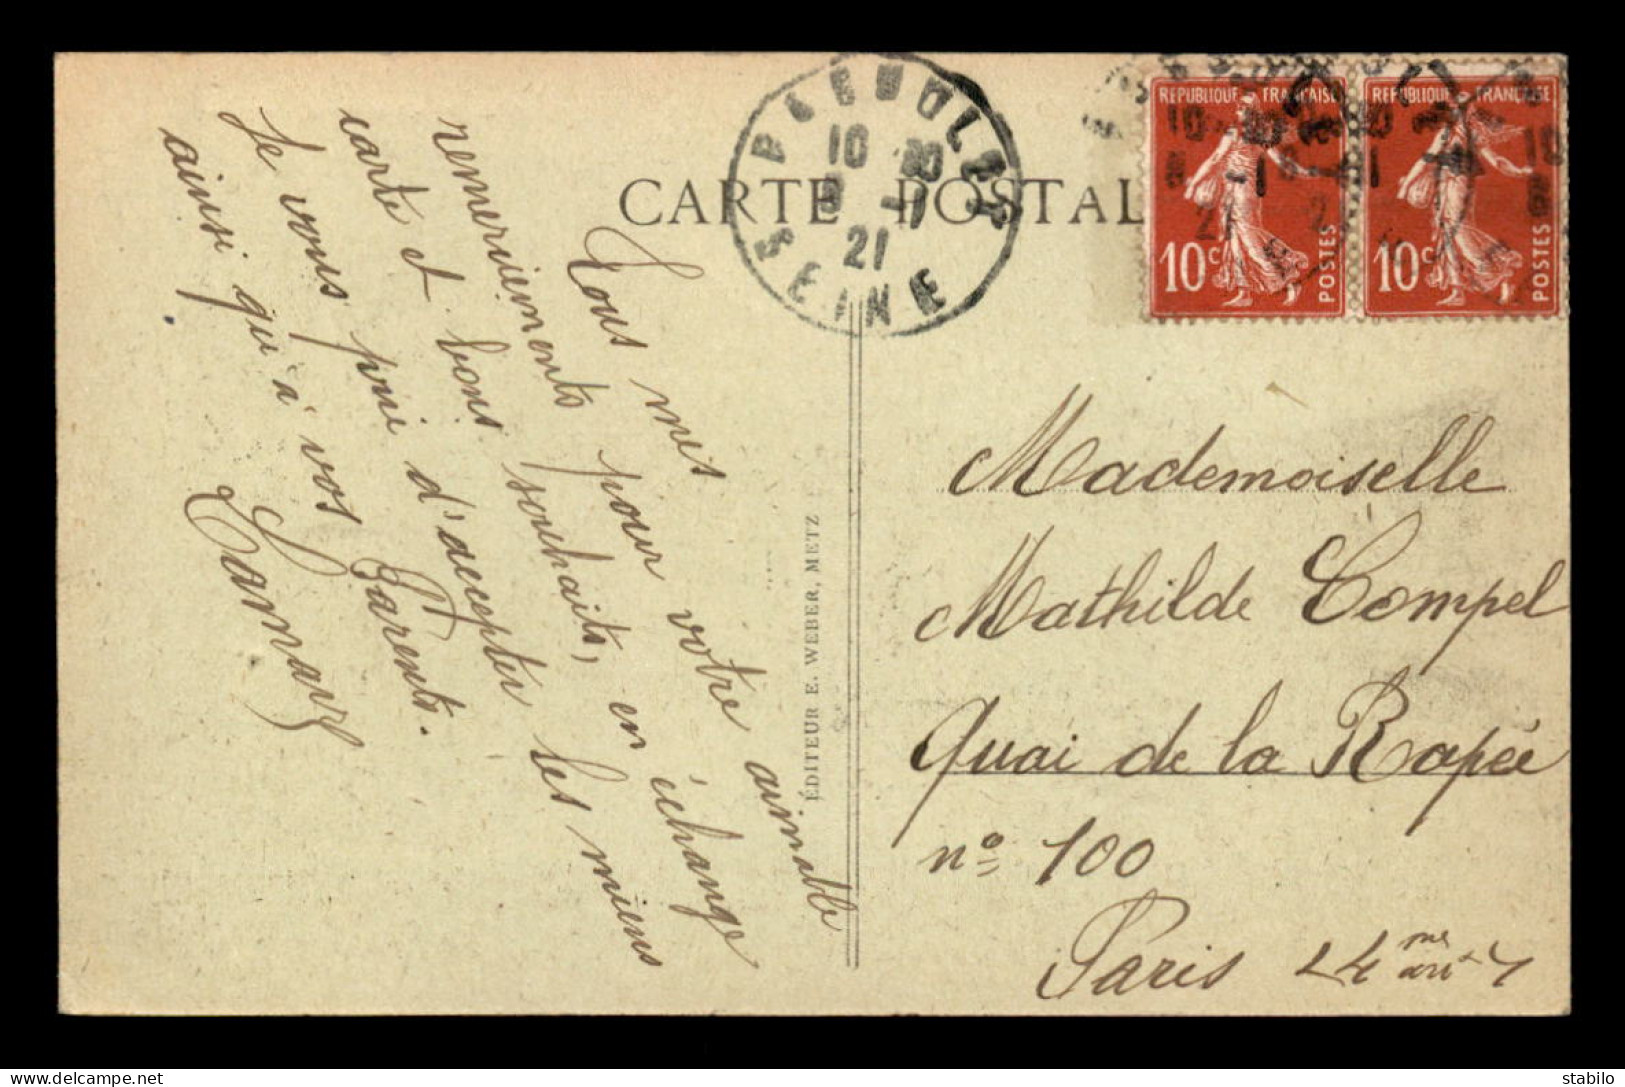 CARTE POSTAL
10 21
SEINE
RÉPUBLIQUE FRANÇAISE
10c POSTES
RÉPUBLIQUE FRANÇAISE
10c POSTES
Tous mes
remerciements pour votre aimable
carte et bons souhaits, en échange
Je vous prie d'accepter les miens
ainsi qu'à vos Parents.
ÉDITEUR E. WEBER, METZ
Mademoiselle
Mathilde Compel
Quai de la Rapée
nº 100
Paris